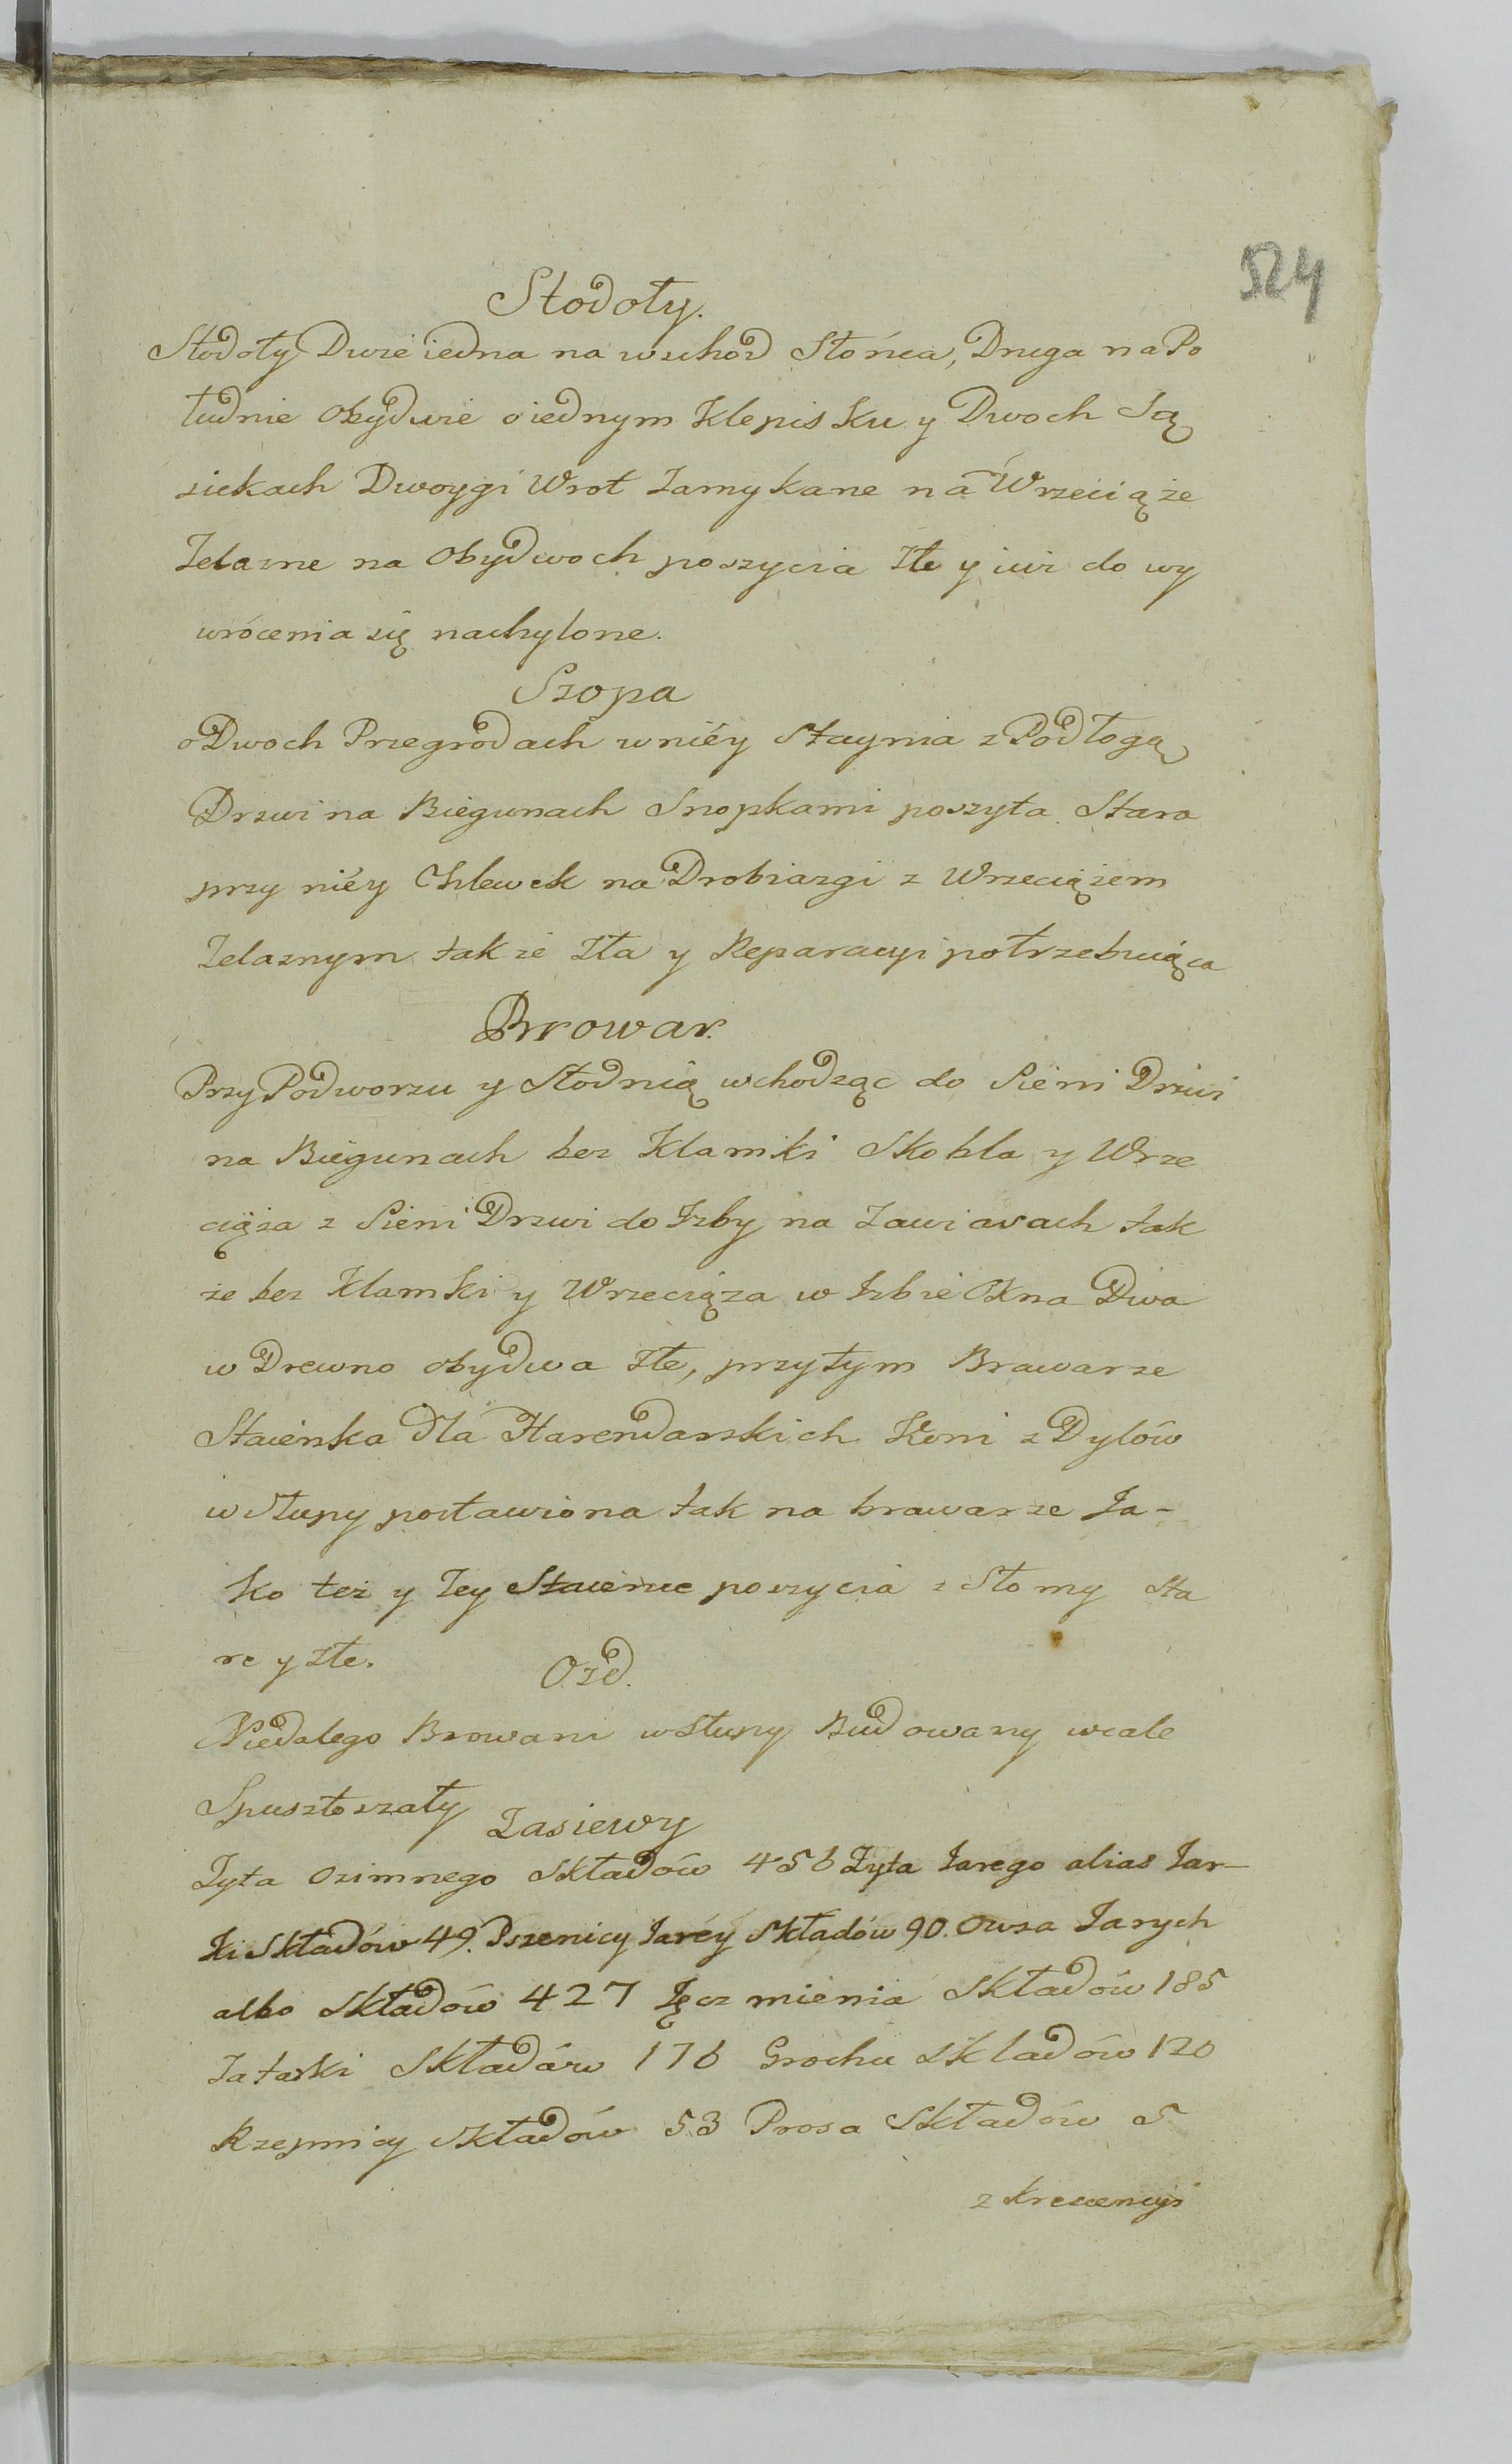 524
Stodoły.
Stodoły Dwie iedna na wschod Słońca, Druga na Po
łudnie obydwie o iednym Klepisku y Dwoch Są
siekach Dwoygi Wrot Zamykane na Wrzeciąże
Żelazne na obydwoch poszycia złe y iuż do wy
wrócenia się nachylone.
Szopa
o Dwoch Przegrodach w niéy Staynia z Podłogą
Drzwi na Biegunach Snopkami poszyta Stara
przy niéy Chlewek na Drobiazgi z Wrzeciążem
Żelaznym także zła y Reparacyi potrzebuiąca
Browar.
Przy Podworzu y Słodnią wchodząc do Sieni Drzwi
na Biegunach bez Klamki Skobla y Wrze
ciąża z Sieni Drzwi do Izby na Zawiasach tak
że bez Klamki y Wrzeciąza w Izbie Okna Dwa
w Drewno obydwa złe, przytym Brawarze
Staienka dla Harendarskich Koni z Dylów
w słupy postawiona tak na brawarze Ja-
ko też y Tey Staience poszycia z Słomy sta
re y złe.
Ozd.
Niedalego Browaru w słupy Budowany wcale
Spustoszały
Zasiewy
Żyta Ozimnego Składów 456 Żyta Jarego alias Jar-
ki Składów 49. Pszenicy Jaréy Składów 90. Owsa Jarych
albo Składów 427 Jęczmienia Składów 185
Tatarki Składów 176 Grochu Składów 120
Rzepnicy Składów 53 Prosa Składów 5
z Krescencyi